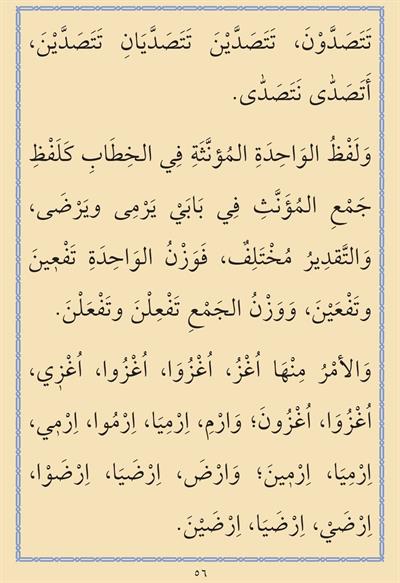 تَتَصَدَّوْنَ، تَتَصَدَّيْنَ تَتَصَدَّيَانِ تَتَصَدَّيْنَ،
أَتَصَدَّى نَتَصَدَّى.
وَلَفْظُ الوَاحِدَةِ المُؤنَّثَةِ فِي الخِطَابِ كَلَفْظِ
جَمْعِ المُؤَنَّثِ فِي بَابَيْ يَرْمِى ويَرْضَى،
وَالتَّقدِيرُ مُخْتَلِفٌ، فَوَزْنُ الوَاحِدَةِ تَفْعِينَ
وتَفْعَيْنَ، وَوَزْنُ الجَمْعِ تَفْعِلْنَ وتَفْعَلْنَ.
وَالأمْرُ مِنْهَا اُغْزُ، اُغْزُوَا، اُغْزُوا، اُغْزِي،
اُغْزُوَا، اُغْزُونَ؛ وَارْمِ، اِرْمِيَا، اِرْمُوا، اِرْمِي،
اِرْمِيَا، اِرْمِينَ؛ وَارْضَ، اِرْضَيَا، اِرْضَوْا،
اِرْضَيْ، اِرْضَيَا، اِرْضَيْنَ.
٥٦